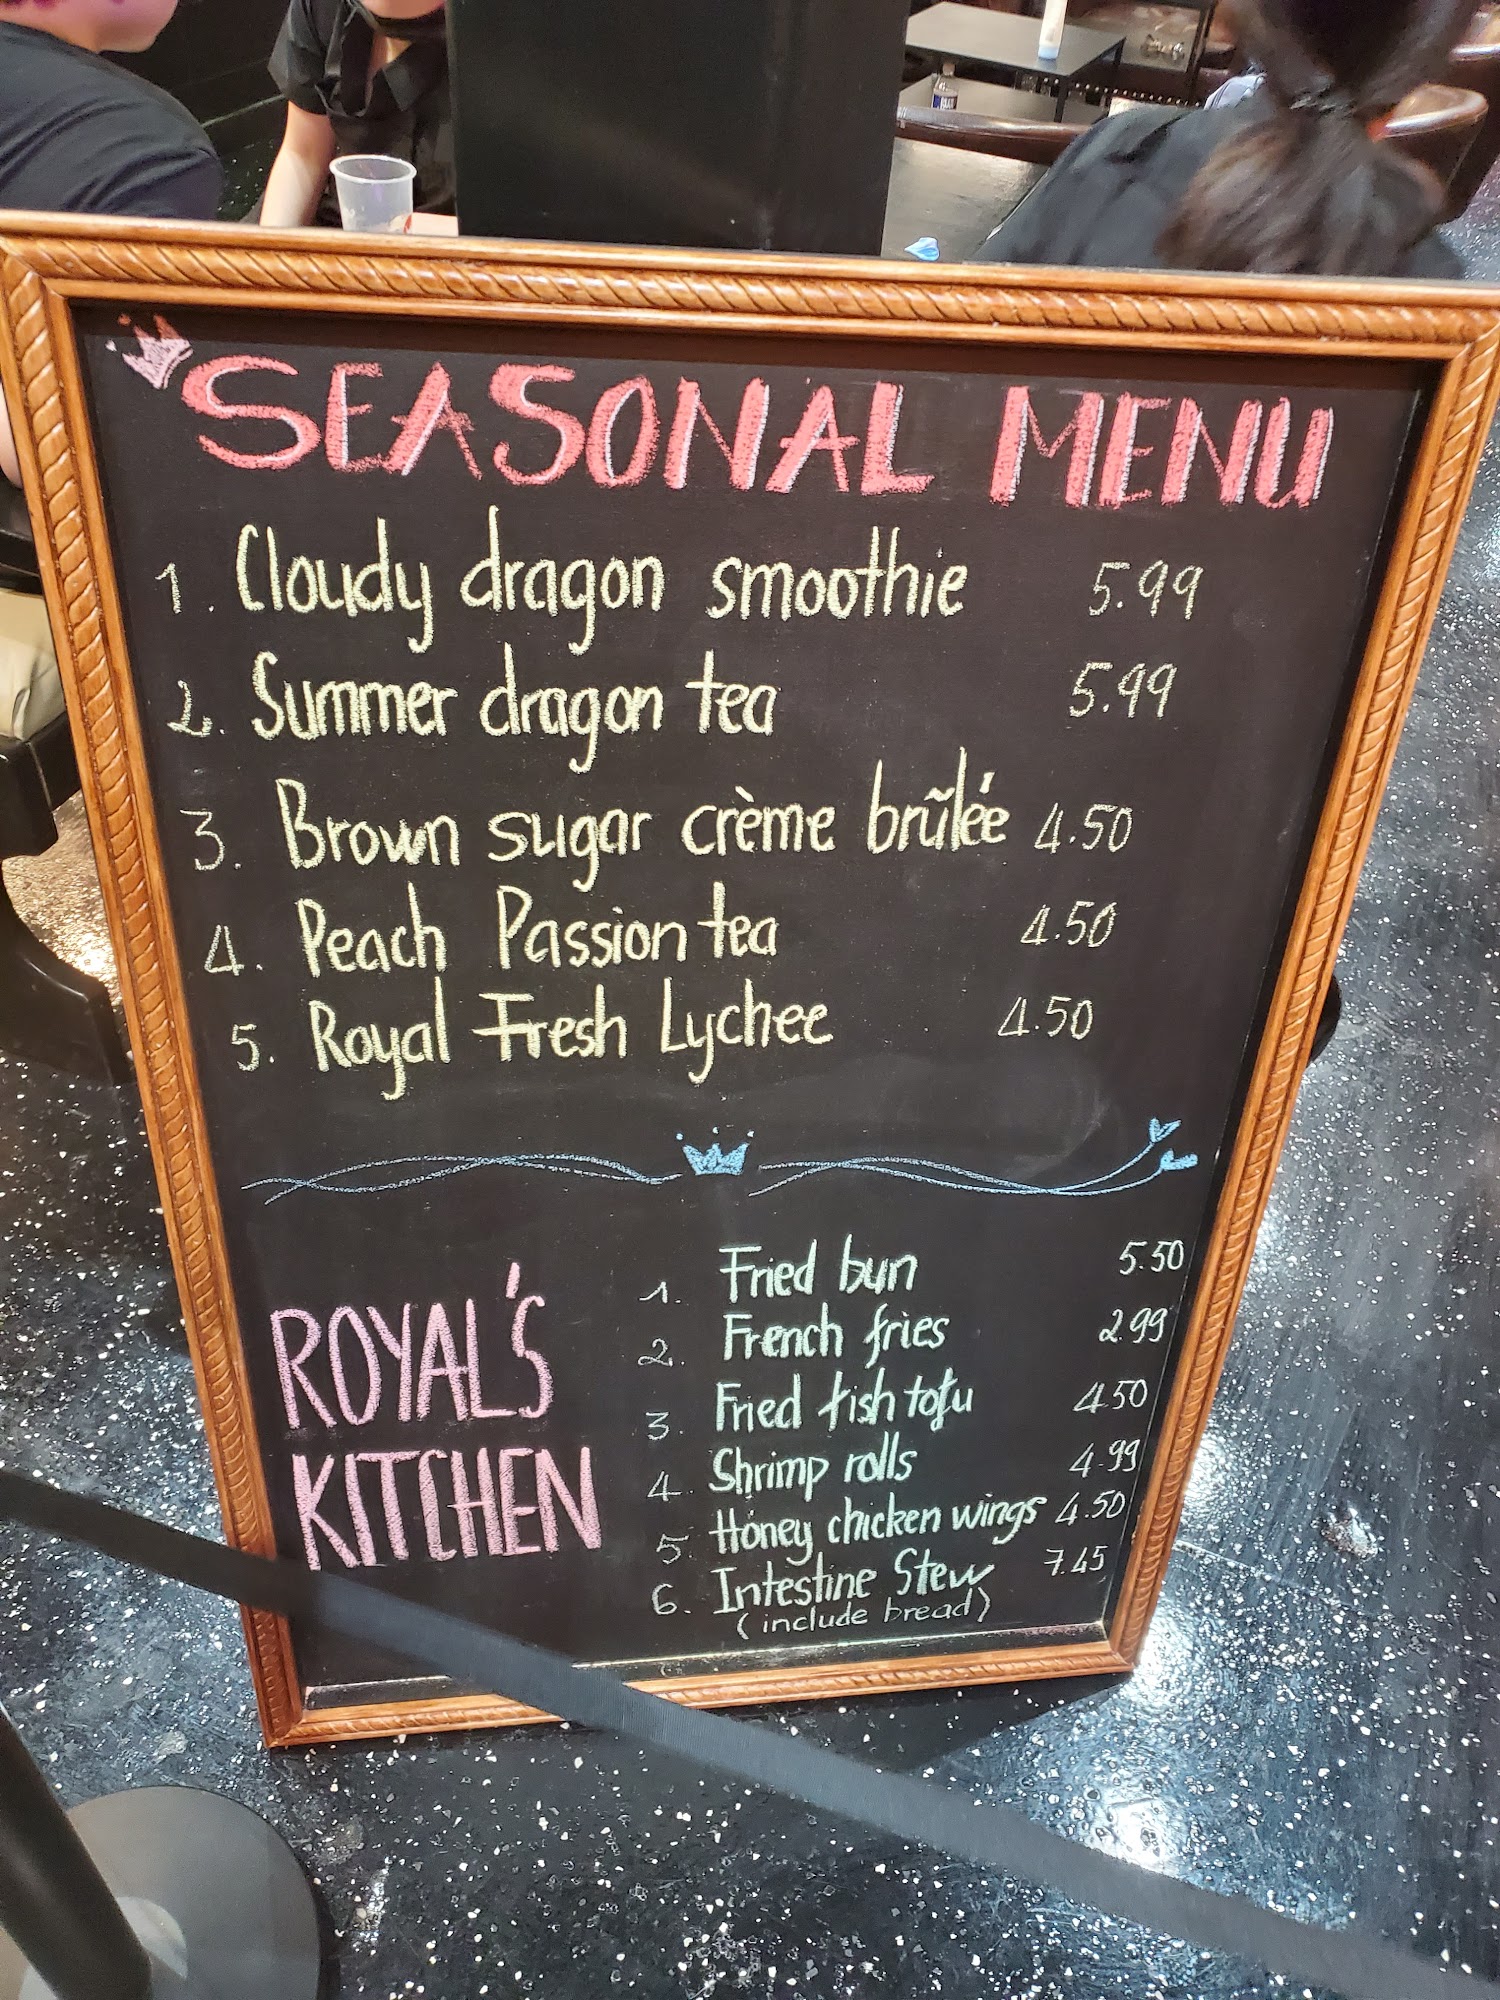 SEASONAL MENU
1. Cloudy dragon smoothie 5.99
2. Summer dragon tea 5.99
3. Brown sugar crème brũlée 4.50
4. Peach Passion tea 4.50
5. Royal Fresh Lychee 4.50
ROYAL'S
KITCHEN
1. Fried bun 5.50
2. French fries 2.99
3. Fried fish tofu 4.50
4. Shrimp rolls 4.99
5. Honey chicken wings 4.50
6. Intestine Stew 7.45
(include bread)